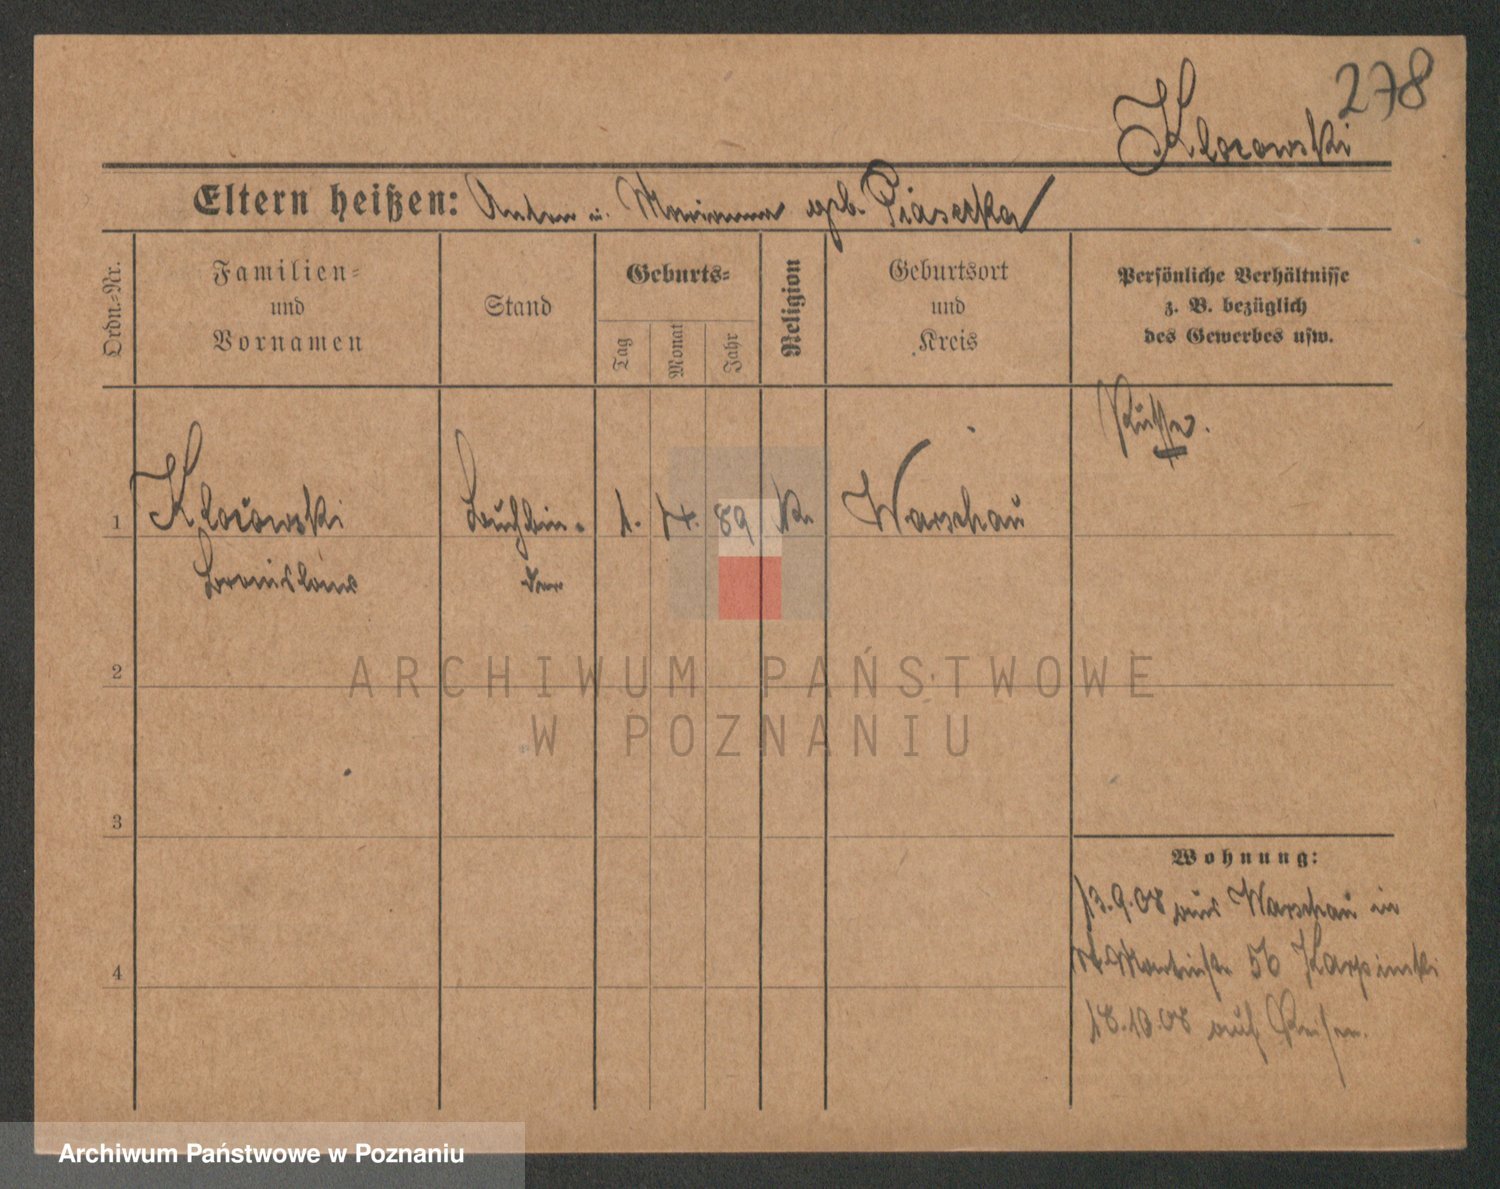 278
Klocowski
Eltern heißen: Anton u. Marianna geb. Piasecka
Ordn.-Nr.
Familien-
und
Vornamen
Stand
Geburts-
Tag
Monat
Jahr
Religion
Geburtsort
und
Kreis
Persönliche Verhältnisse
z. B. bezüglich
des Gewerbes usw.
Russe.
1 Klocowski Buchbin- 1. 4. 89 K. Warschau
Bronislaus der
2
3
4
Wohnung:
13.9.08 aus Warschau in
56 Karpinski
18.10.08 auf Reisen.
ARCHIWUM PAŃSTWOWE
W POZNANIU
Archiwum Państwowe w Poznaniu